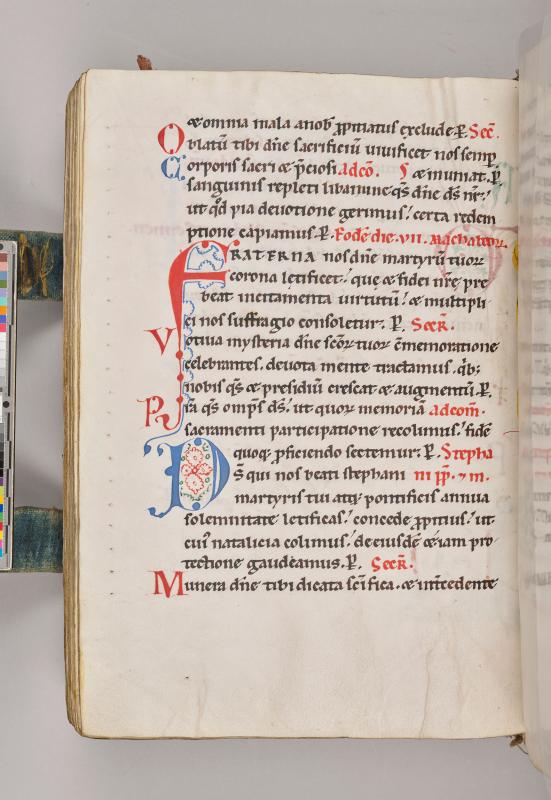 & omnia mala a nob ꝓpitiatus exclude. ꝑ. Secr̄.
Oblatū tibi dn̄e sacrificiū uiuificet nos semꝑ
Corporis sacri & p̄ciosi ad cō. & muniat. ꝑ.
sanguinis repleti libamine qs̄ dn̄e ds̄ nr̄:
ut qd̄ pia deuotione gerimus / certa redem
ptione capiamus. ꝑ. Eodē die .vii. Machabeor.
FRATERNA nos dn̄e martyrū tuor
corona letificet / que & fidei nr̄e pre
beat incitamenta uirtutū / & multipli
ci nos suffragio consoletur. ꝑ. Secr̄.
Uotiua mysteria dn̄e scōꝝ tuoꝝ cōmemoratione
celebrantes, deuota mente tractamus, qb;
nobis qs̄ & presidiū crescat & augmentū. ꝑ.
Pr̄a qs̄ omps̄ ds̄ / ut quoꝝ memoriā ad com̄.
sacramenti participatione recolimus / fidē
quoq; ꝓficiendo sectemur. ꝑ. Stepha
DS̄ qui nos beati stephani ni pp̄. & m.
martyris tui atq; pontificis annua
solemnitate letificas / concede ꝓpitius / ut
cui' natalicia colimus / de eiusdē etiam pro
tectione gaudeamus. ꝑ. Secr̄.
Munera dn̄e tibi dicata sc̄ifica. & int̄cedente